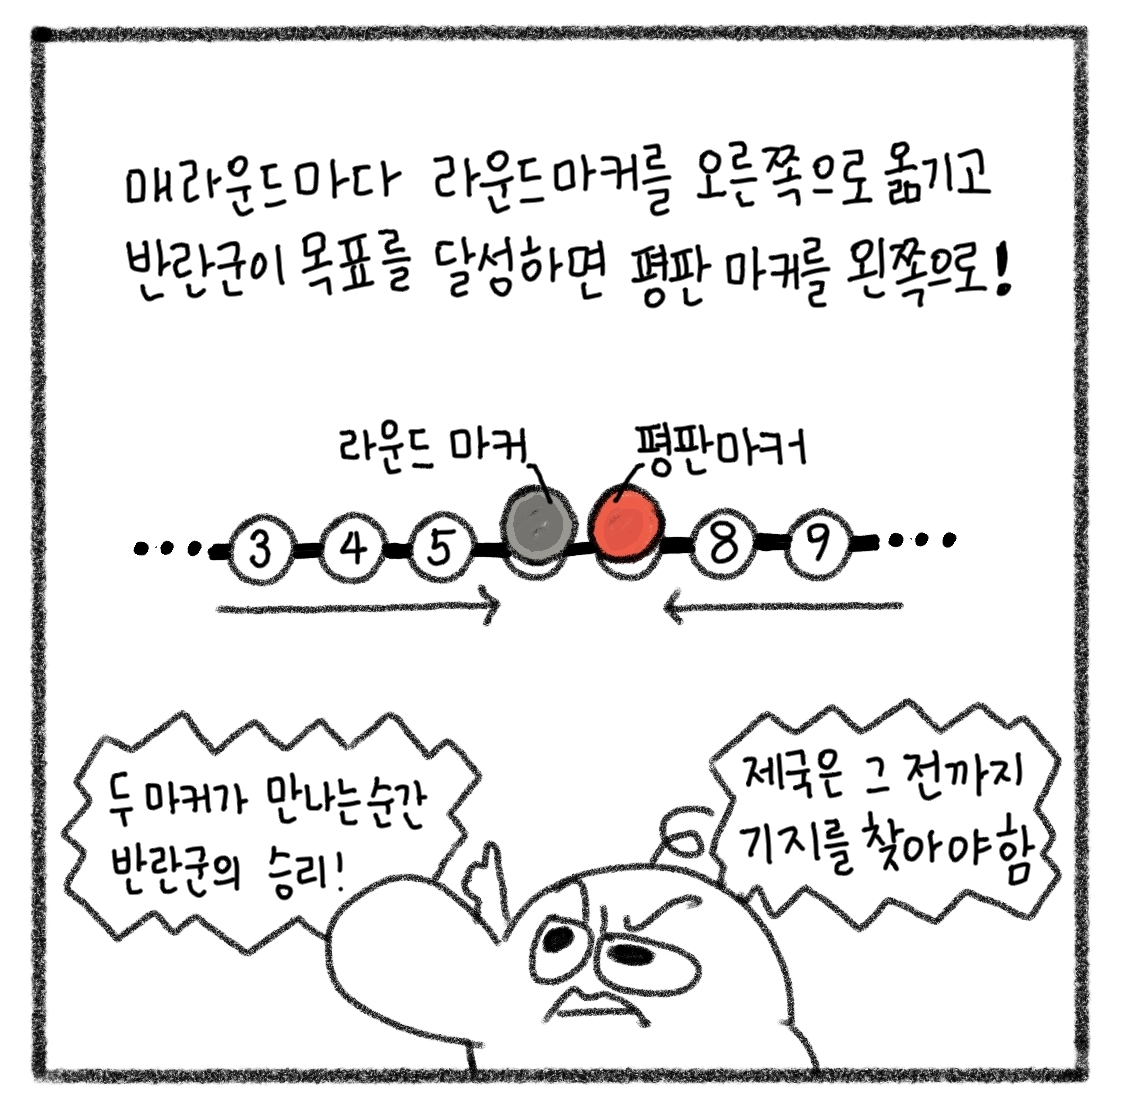 매라운드마다 라운드마커를 오른쪽으로 옮기고
반란군이 목표를 달성하면 평판 마커를 왼쪽으로!
라운드 마커 평판마커
3 4 5 8 9
두 마커가 만나는순간
반란군의 승리!
제국은 그 전까지
기지를 찾아야함